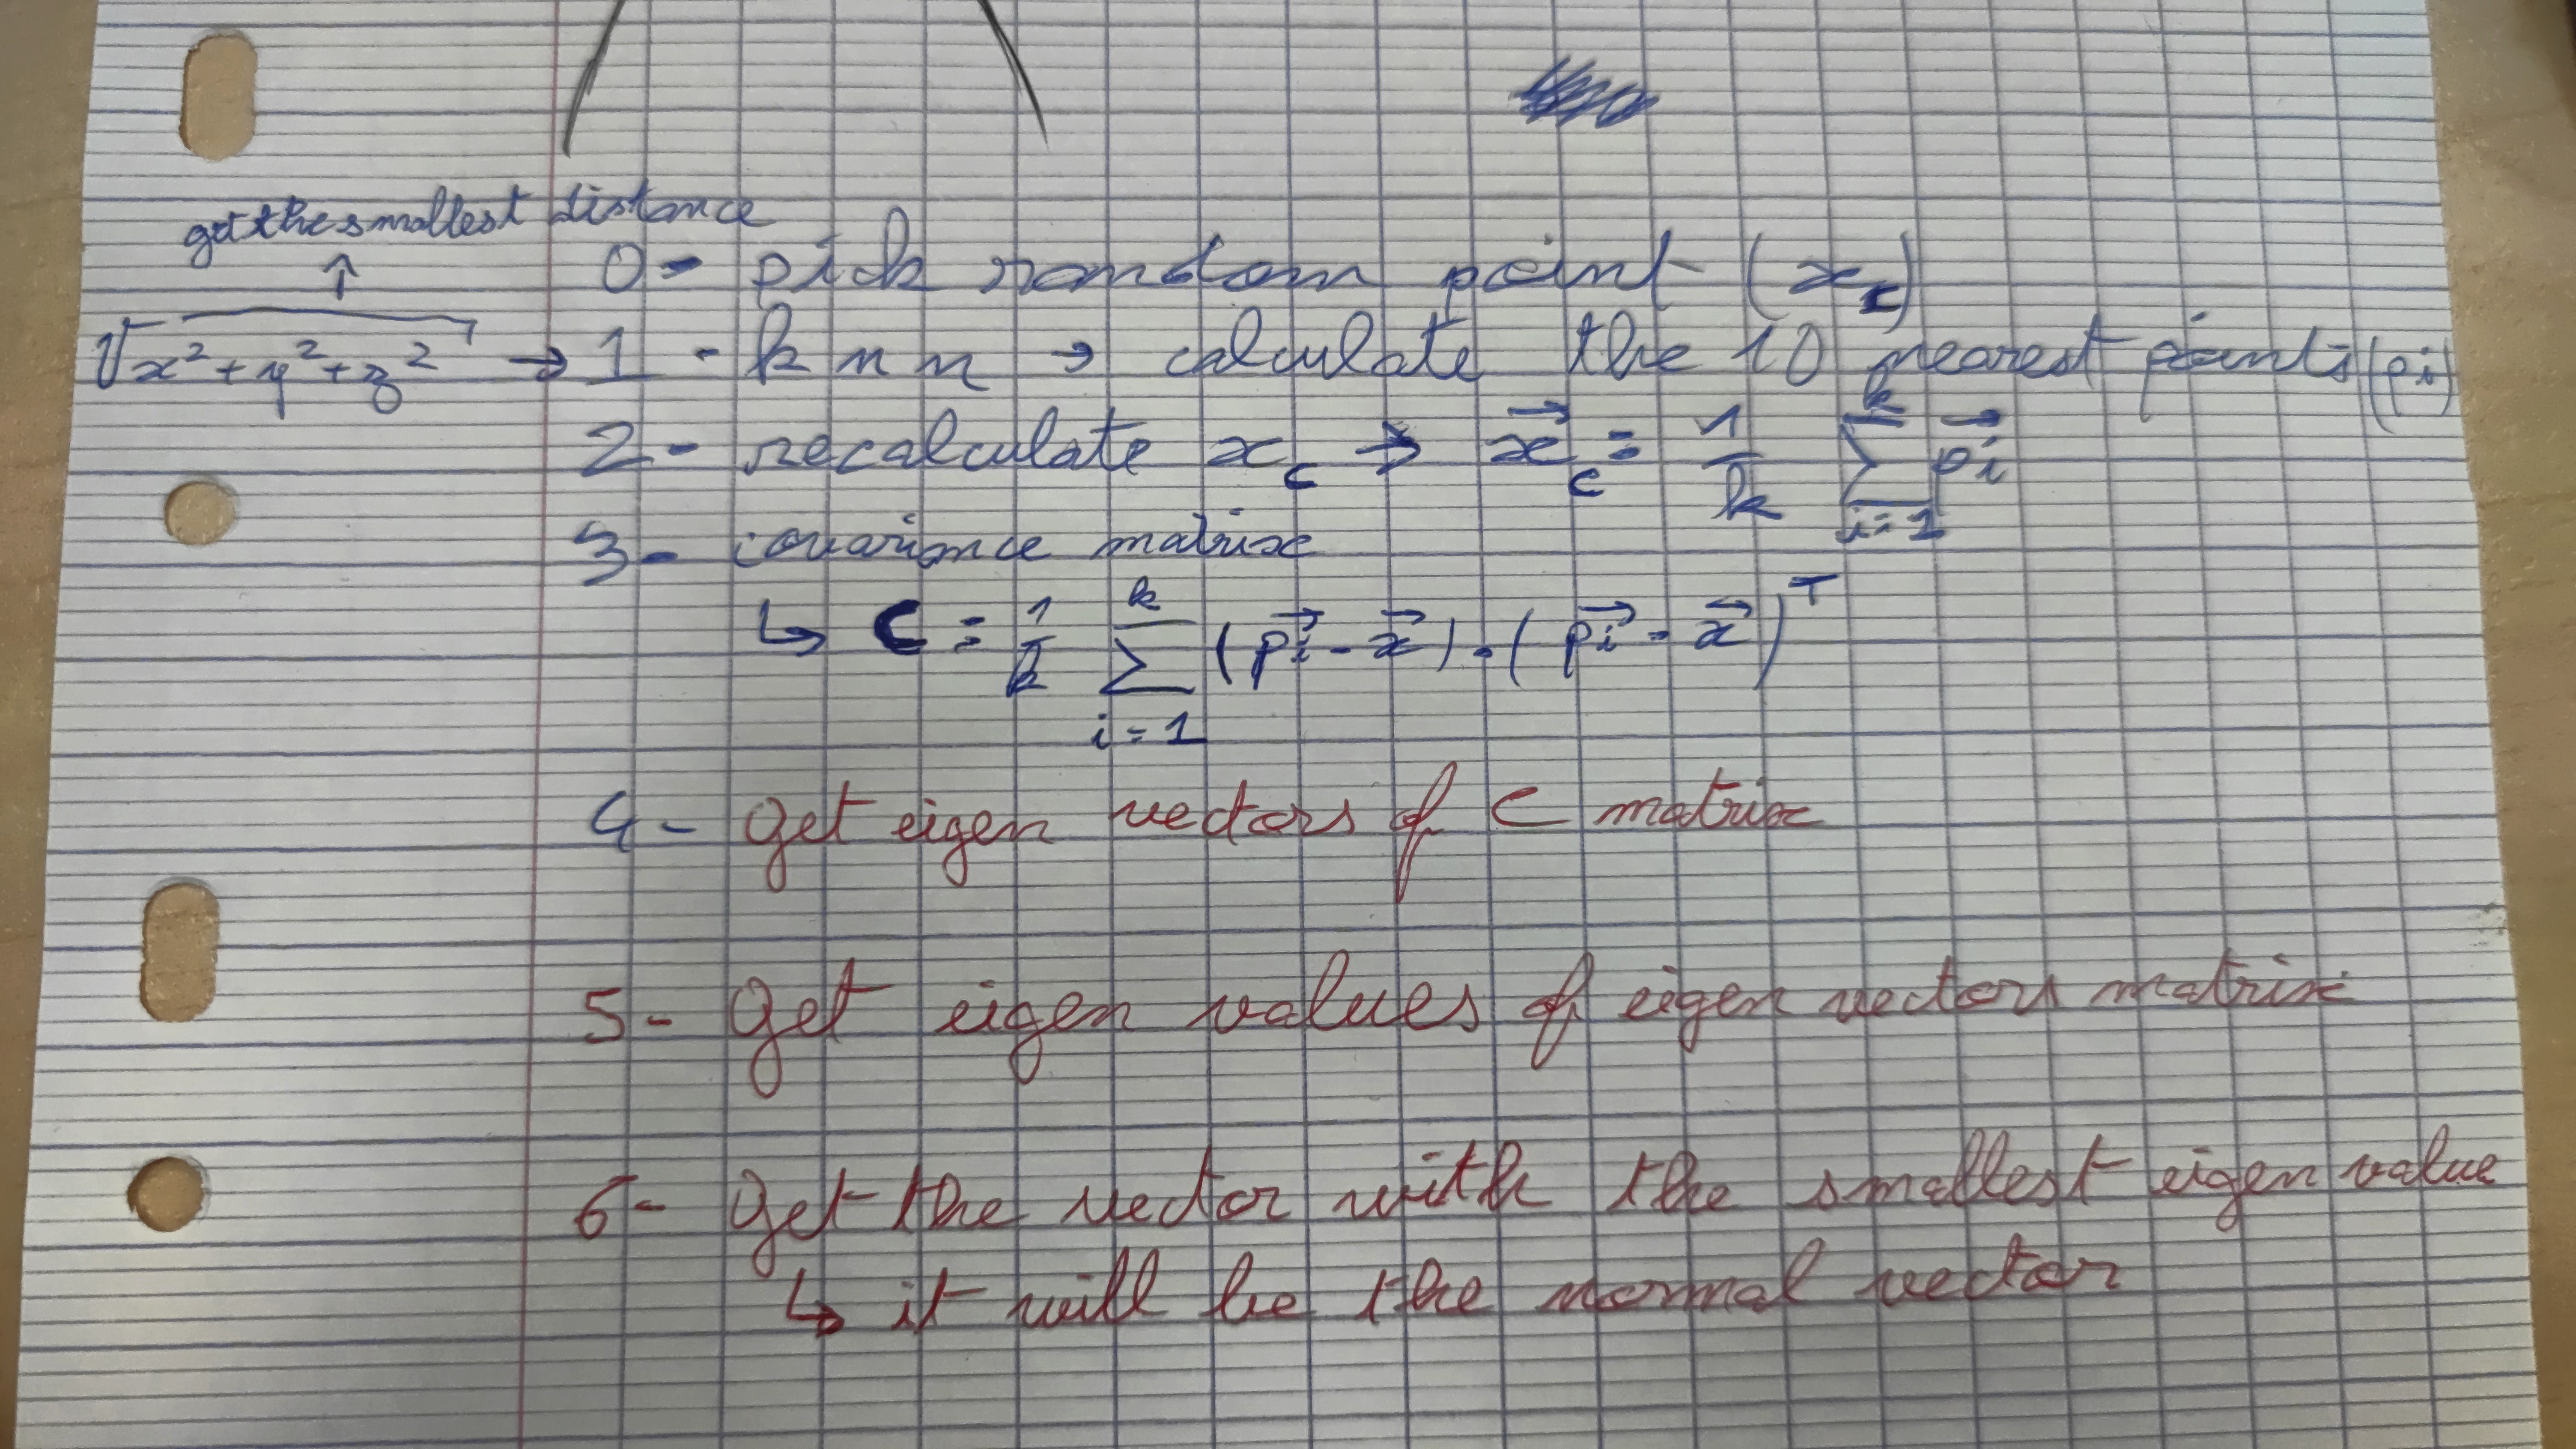 get the smallest distance
↑
0- pick random point (x_c)
√x²+y²+z² → 1 - k n n → calculate the 10 nearest points (pi)
2- recalculate x_c → x⃗_c = 1/k ∑_{i=1}^{k} p⃗i
3- covariance matrix
↳ C = 1/k ∑_{i=1}^{k} (p⃗i - x⃗) . (p⃗i - x⃗)^T
4- get eigen vectors of C matrix
5- get eigen values of eigen vectors matrix
6- get the vector with the smallest eigen value
↳ it will be the normal vector